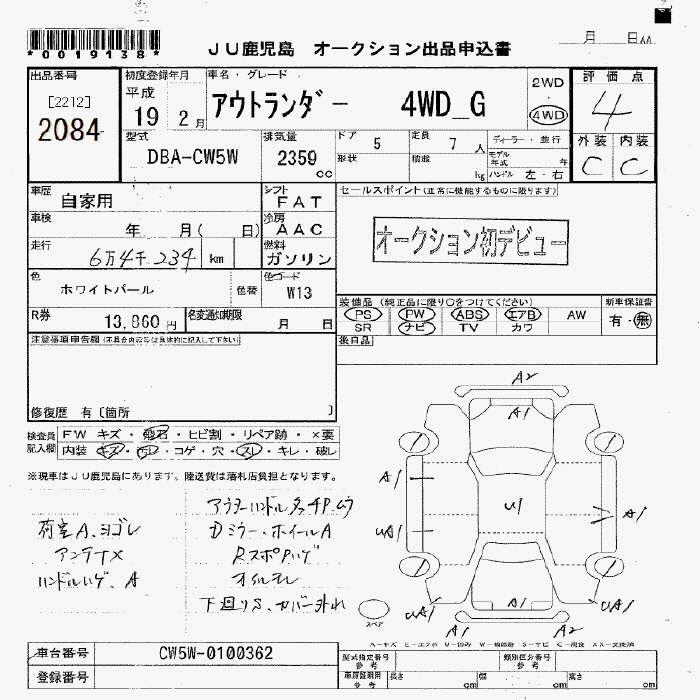 *0019138*
JU鹿児島 オークション出品申込書
月 日
出品番号
[2212]
2084
初度登録年月
平成
19 2月
車名・グレード
アウトランダー 4WD_G
2WD
4WD
評価点
4
型式
DBA-CW5W
排気量
2359
cc
ドア 5
形状
定員 7 人
積載 kg
ディーラー・並行
モデル年式 年
ハンドル 左・右
外装 内装
C C
車歴
自家用
シフト
FAT
車検
年 月( 日)
冷房
AAC
走行
6万4千234 km
燃料
ガソリン
セールスポイント(正常に機能するものに限ります)
オークション初デビュー
色
ホワイトパール
色替
色コード
W13
R券
13,860円
名変通知期限
月 日
装備品(純正品に限り○をつけてください)
PS PW ABS エアB AW
SR ナビ TV カワ
新車保証書
有・無
後日品
注意事項申告欄(不具合内容等は具体的に記入して下さい)
修復歴 有〔箇所 〕
検査員記入欄
FW キズ・飛石・ヒビ割・リペア跡・×要
内装 キズ・汚レ・コゲ・穴・スレ・キレ・破レ
※現車はJU鹿児島にあります。陸送費は落札店負担となります。
荷室A、ヨゴレ
アンテナX
ハンドルハゲ、A
アウターハンドルタッチP、ムラ
Dミラー・ホイールA
RスポPハゲ
オイルモレ
下廻りS、カバー外れ
A2
A1
A1
UA1
U1
A1
UA1
A1
UA1
A1
A2
スペア
A-キズ E-エクボ U-凹み W-補修跡 S-サビ C-腐食 XX-交換済
車台番号 CW5W-0100362
登録番号
型式指定番号 参考
類別区分番号 参考
車庫証明用 参考
長さ cm
幅 cm
高さ cm